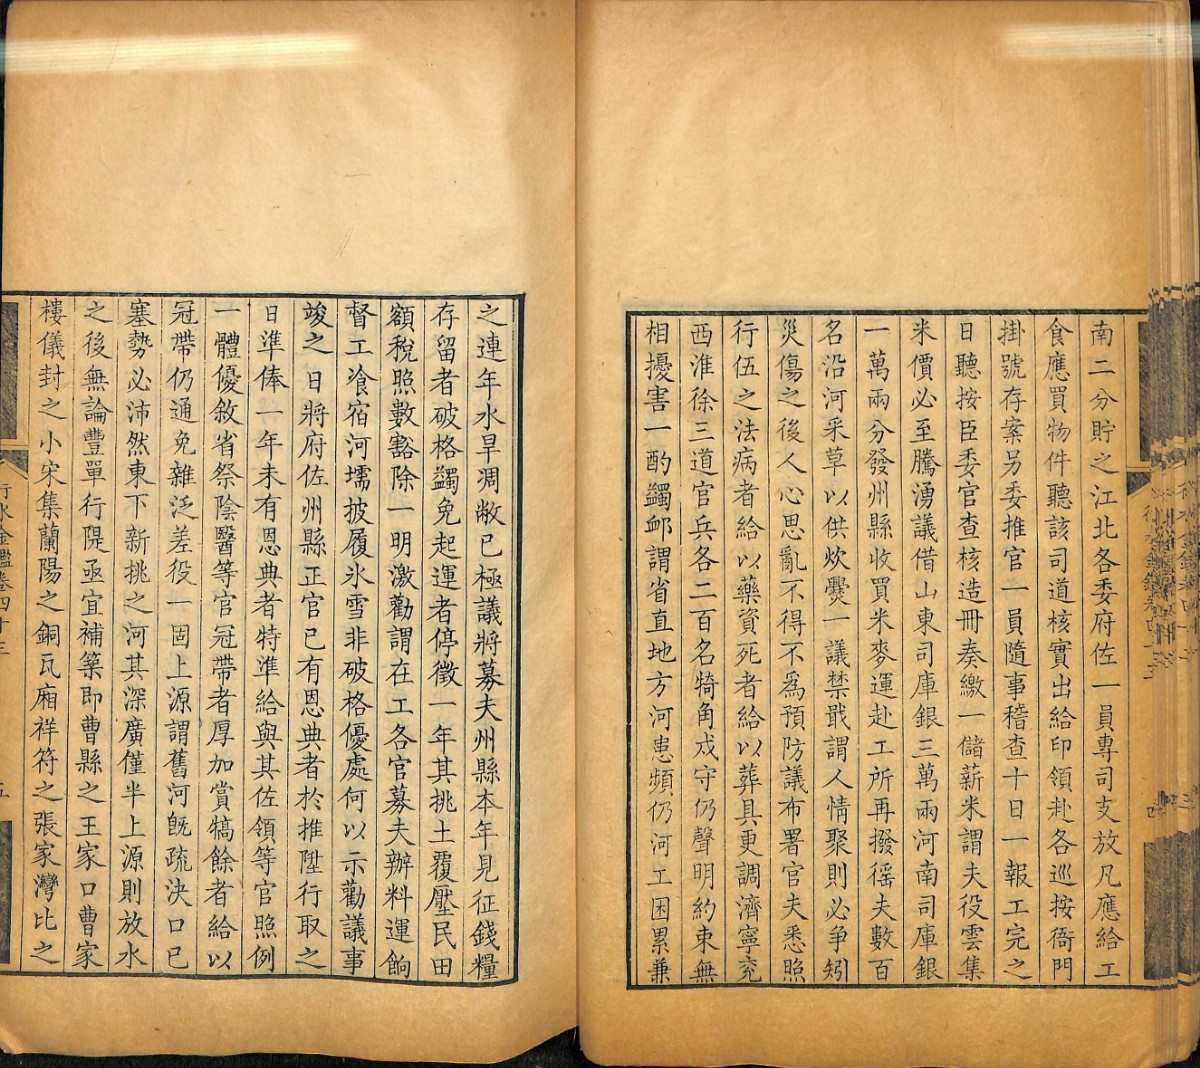 南二分貯之江北各委府佐一員專司支放凡應給工
食應買物件聽該司道核實出給印領赴各巡按衙門
掛號存案另委推官一員隨事稽查十日一報工完之
日聽按臣委官查核造冊奏繳一儲薪米謂夫役雲集
米價必至騰湧議借山東司庫銀三萬兩河南司庫銀
一萬兩分發州縣收買米麥運赴工所再撥徭夫數百
名沿河采草以供炊爨一議禁戢謂人情聚則必爭矧
災傷之後人心思亂不得不爲預防議布署官夫悉照
行伍之法病者給以藥資死者給以葬具更調濟寧兗
西淮徐三道官兵各二百名犄角戍守仍聲明約束無
相擾害一酌蠲卹謂省直地方河患頻仍河工困累兼
之連年水旱凋敝已極議將募夫州縣本年見征錢糧
存留者破格蠲免起運者停徵一年其挑土覆壓民田
額稅照數豁除一明激勸謂在工各官募夫辦料運餉
督工飡宿河壖披履氷雪非破格優處何以示勸議事
竣之日將府佐州縣正官已有恩典者於推陞行取之
日準俸一年未有恩典者特準給與其佐領等官照例
一體優敘省祭陰醫等官冠帶者厚加賞犒餘者給以
冠帶仍通免雜泛差役一固上源謂舊河旣疏決口已
塞勢必沛然東下新挑之河其深廣僅半上源則放水
之後無論豐單行隄亟宜補築即曹縣之王家口曹家
樓儀封之小宋集蘭陽之銅瓦廂祥符之張家灣比之
行水金鑑卷四十三
五